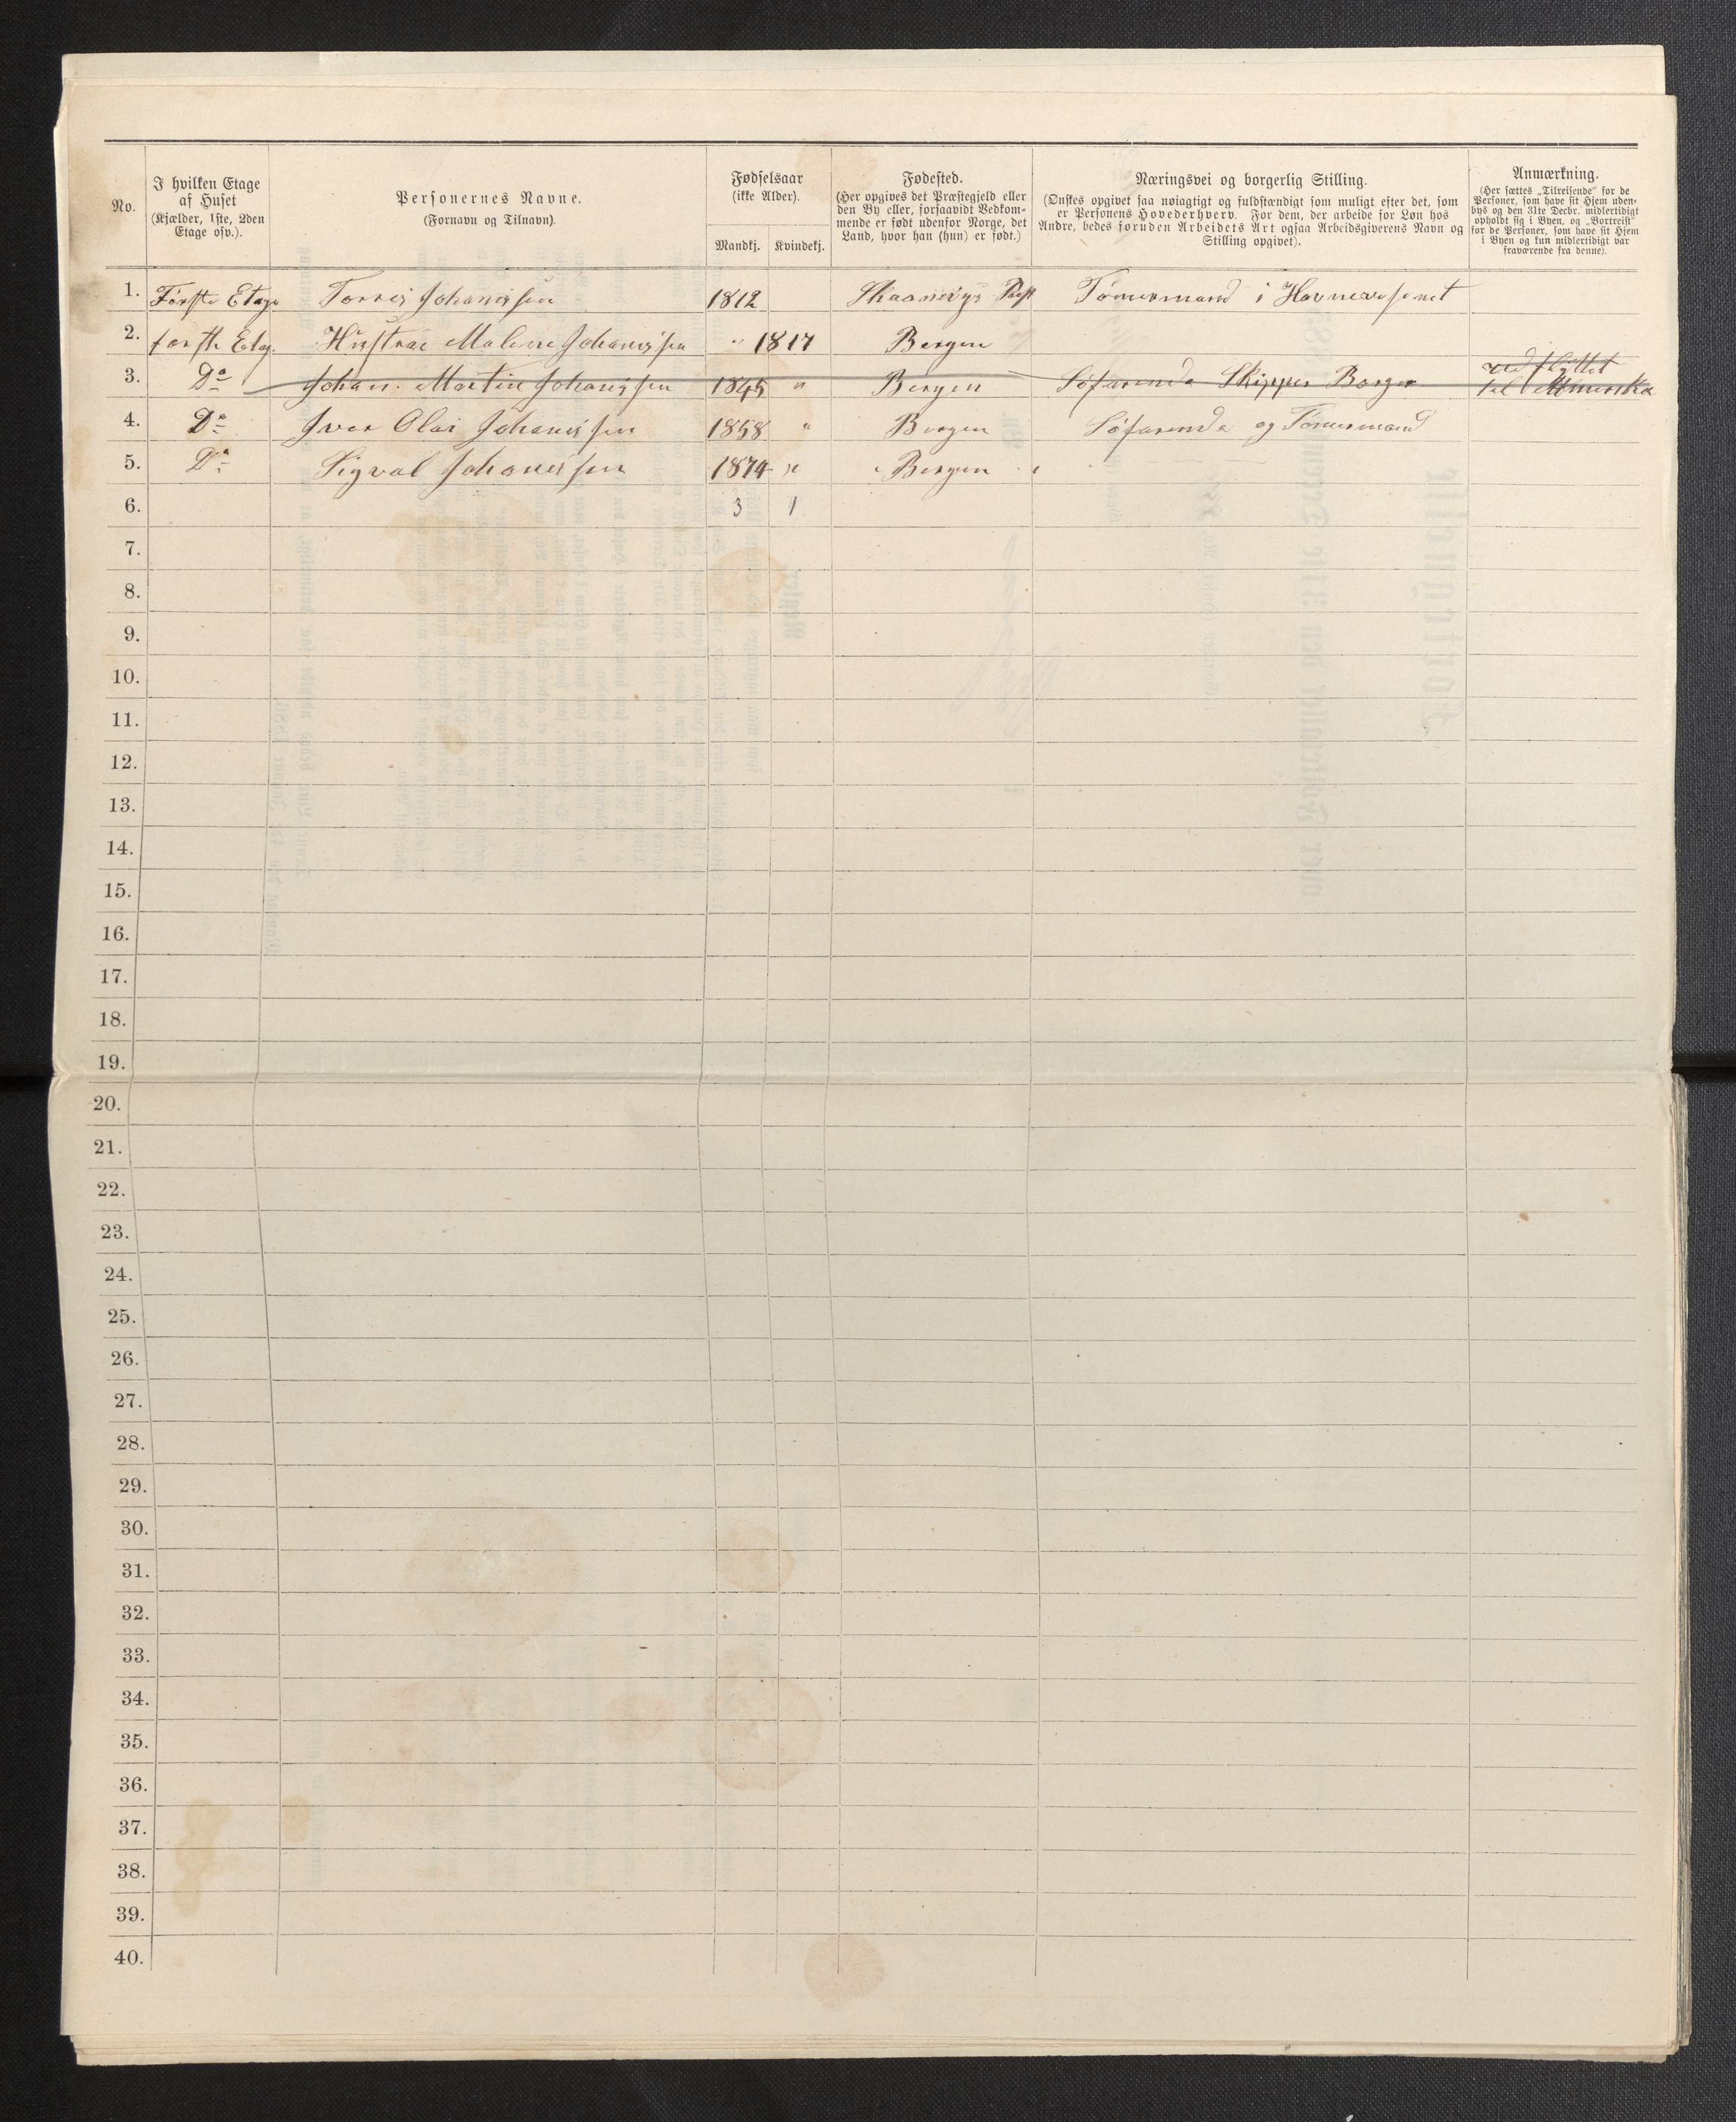 No.
I hvilken Etage
af Huset
(Kjælder, 1ste, 2den
Etage osv.).
Personernes Navne.
(Fornavn og Tilnavn).
Fødselsaar
(ikke Alder).
Mandkj. Kvindekj.
Fødested.
(Her opgives det Præstegjeld eller
den By eller, forsaavidt Vedkom-
mende er født udenfor Norge, det
Land, hvor han (hun) er født.)
Næringsvei og borgerlig Stilling.
(Ønskes opgivet saa nøiagtigt og fuldstændigt som muligt efter det, som
er Personens Hovederhverv. For dem, der arbeide for Løn hos
Andre, bedes foruden Arbeidets Art ogsaa Arbeidsgiverens Navn og
Stilling opgivet).
Anmærkning.
(Her sættes „Tilreisende" for de
Personer, som have sit Hjem uden-
bys og den 31te Decbr. midlertidigt
opholdt sig i Byen, og „Bortreist"
for de Personer, som have sit Hjem
i Byen og kun midlertidigt var
fraværende fra denne).
1. Første Etage Torris Johanissen 1812 Skaanevigs Tømermand i Havnevesenet
2. første Etag. Hustrue Malene Johanissen " 1817 Bergen
3. Do Johan Martin Johanissen 1845 " Bergen Søfarende Skipper Borger udflyttet
til Amerika
4. Do Iver Olai Johanissen 1858 " Bergen Søfarende og Tømermand
5. Do Sigval Johanissen 1874 " Bergen
6. 3 1
7.
8.
9.
10.
11.
12.
13.
14.
15.
16.
17.
18.
19.
20.
21.
22.
23.
24.
25.
26.
27.
28.
29.
30.
31.
32.
33.
34.
35.
36.
37.
38.
39.
40.